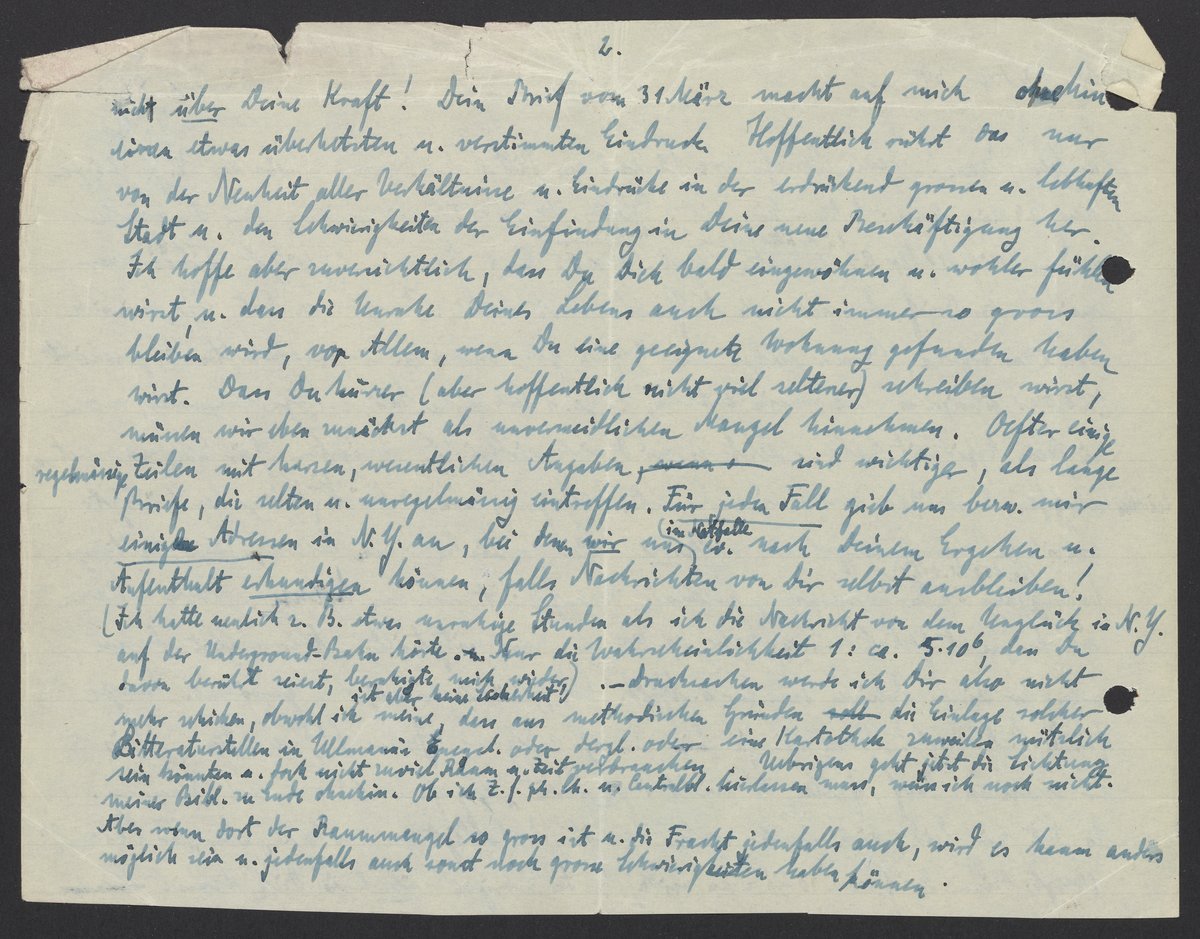 2.
nicht über Deine Kraft! Dein Brief vom 31 März macht auf mich ohnehin
einen etwas überhetzten u. verstimmten Eindruck Hoffentlich rührt das nur
von der Neuheit aller Verhältnisse u. Eindrücke in der erdrückend grossen u. lebhaften
Stadt u. den Schwierigkeiten der Einfindung in Deine neue Beschäftigung her.
Ich hoffe aber zuversichtlich, dass Du Dich bald eingewöhnen u. wohler fühlen
wirst, u. dass die Unruhe Deines Lebens auch nicht immer so gross
bleiben wird, vor Allem, wenn Du eine geeignete Wohnung gefunden haben
wirst. Dass Du kürzer (aber hoffentlich nicht viel seltener) schreiben wirst,
müssen wir eben zunächst als unvermeidlichen Mangel hinnehmen. Oefter einige
regelmässige Zeilen mit kurzen, wesentlichen Angaben, sind wichtiger, als lange
Briefe, die selten u. unregelmässig eintreffen. Für jeden Fall gieb uns bezw. mir
einige Adressen in N.Y. an, bei denen wir uns (im Notfalle) ev. nach Deinem Ergehen u.
Aufenthalt erkundigen können, falls Nachrichten von Dir selbst ausbleiben!
(Ich hatte neulich z. B. etwas unruhige Stunden als ich die Nachricht von dem Unglück in N.Y.
auf der Underground-Bahn hörte. Nur die Wahrscheinlichkeit 1: ca. 5·10⁶, dass Du
davon berührt seiest, beruhigte mich wieder,
ist aber keine Sicherheit!) – Drucksachen werde ich Dir also nicht
mehr schicken, obwohl ich meine, dass aus methodischen Gründen die Einlage solcher
Litteraturstellen in Ullmann's oder dergl. oder eine Kartothek zuweilen nützlich
sein könnten u. doch nicht zuviel Raum u. Zeit verbrauchen. Uebrigens geht jetzt die Sichtung
meiner Bibl. zu Ende ohnehin. Ob ich Z. f. ph. Ch. u. Centralbl. hierlassen muss, weiss ich noch nicht.
Aber wenn dort der Raummangel so gross ist u. die Fracht jedenfalls auch, wird es kaum anders
möglich sein u. jedenfalls auch sonst noch grosse Schwierigkeiten haben können.